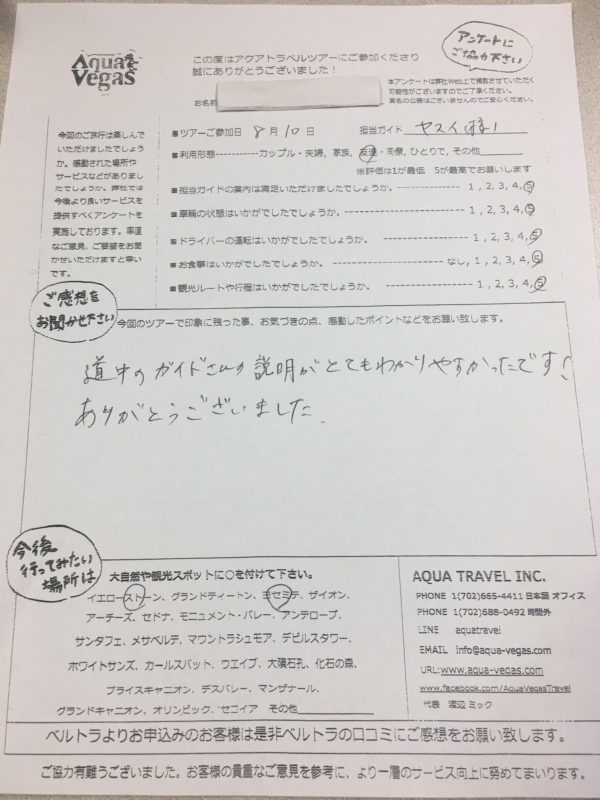 Aqua Vegas
この度はアクアトラベルツアーにご参加くださり
誠にありがとうございました！
アンケートに
ご協力下さい
本アンケートは弊社Web上で掲載させていただく
可能性がございますのでご了承ください。
実名の公表はございませんのでご安心ください。
お名前
今回のご旅行は楽しんで
いただけましたでしょう
か。感動された場所や
サービスなどがありまし
たでしょうか。弊社では
今後より良いサービスを
提供すべくアンケートを
実施しております。率直
なご意見、ご要望をお聞
かせいただけますと幸い
です。
■ツアーご参加日 8月10日 担当ガイド ヤスイ様！
■利用形態-----------カップル・夫婦, 家族, 友達・同僚, ひとりで, その他
※評価は1が最低 5が最高でお願いします
■担当ガイドの案内は満足いただけましたでしょうか。 ---------------- 1 , 2, 3, 4, 5
■車輌の状態はいかがでしたでしょうか。---------------------- 1 , 2, 3, 4, 5
■ドライバーの運転はいかがでしたでしょうか。 ---------------- 1 , 2, 3, 4, 5
■お食事はいかがでしたでしょうか。 ------------------- なし, 1, 2, 3, 4, 5
■観光ルートや行程はいかがでしたでしょうか。---------------- 1 , 2, 3, 4, 5
ご感想を
お聞かせ下さい
今回のツアーで印象に残った事、お気づきの点、感動したポイントなどをお願い致します。
道中のガイドさんの説明がとてもわかりやすかったです！
ありがとうございました。
今後
行ってみたい
場所は
大自然や観光スポットに○を付けて下さい。
イエローストーン、グランドティートン、ヨセミテ、ザイオン、
アーチーズ、セドナ、モニュメント・バレー、アンテロープ、
サンタフェ、メサベルデ、マウントラシュモア、デビルスタワー、
ホワイトサンズ、カールスバット、ウエイブ、大隕石孔、化石の森、
ブライスキャニオン、デスバレー、マンザナール、
グランドキャニオン、オリンピック、セコイア その他
AQUA TRAVEL INC.
PHONE 1(702)665-4411 日本語 オフィス
PHONE 1(702)688-0492 時間外
LINE aquatravel
EMAIL info@aqua-vegas.com
URL:www.aqua-vegas.com
www.facebook.com/AquaVegasTravel
代表 渡辺 ミック
ベルトラよりお申込みのお客様は是非ベルトラの口コミにご感想をお願い致します。
ご協力有難うございました。お客様の貴重なご意見を参考に、より一層のサービス向上に努めてまいります。